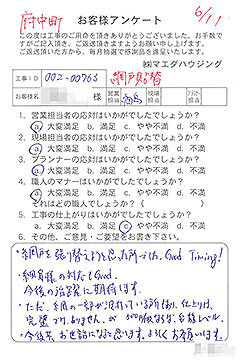 府中町
6/11
お客様アンケート
この度は工事のご用命を頂きありがとうございました。お手数で
すがご記入頂き、ご返送頂きますようお願い申し上げます。
ご返送頂いた方から、毎月抽選で感謝品を進呈いたします。
㈱マエダハウジング
工事:ID 002-00765 網戸貼替
お客様名 様 営業担当 現場担当 プランナー担当
1. 営業担当者の応対はいかがでしたでしょうか?
a 大変満足 b. 満足 c. やや不満 d. 不満
2. 現場担当者の応対はいかがでしたでしょうか?
a 大変満足 b. 満足 c. やや不満 d. 不満
3. プランナーの応対はいかがでしたでしょうか?
a. 大変満足 b. 満足 c. やや不満 d. 不満
4. 職人のマナーはいかがでしたでしょうか?
a 大変満足 b. 満足 c. やや不満 d. 不満
それはどの職人でしょうか?( )
5. 工事の仕上がりはいかがでしたでしょうか?
a. 大変満足 b. 満足 c やや不満 d. 不満
6. その他、ご意見・ご要望をお書き下さい。
・網戸を張り替えようと思った所でしたので Good Timing!
の対応もGood.
今後の活躍に期待します。
・ただ、網の一部が
完璧でありませんが
・今後共、お世話になると思います。よろしくお願いします。